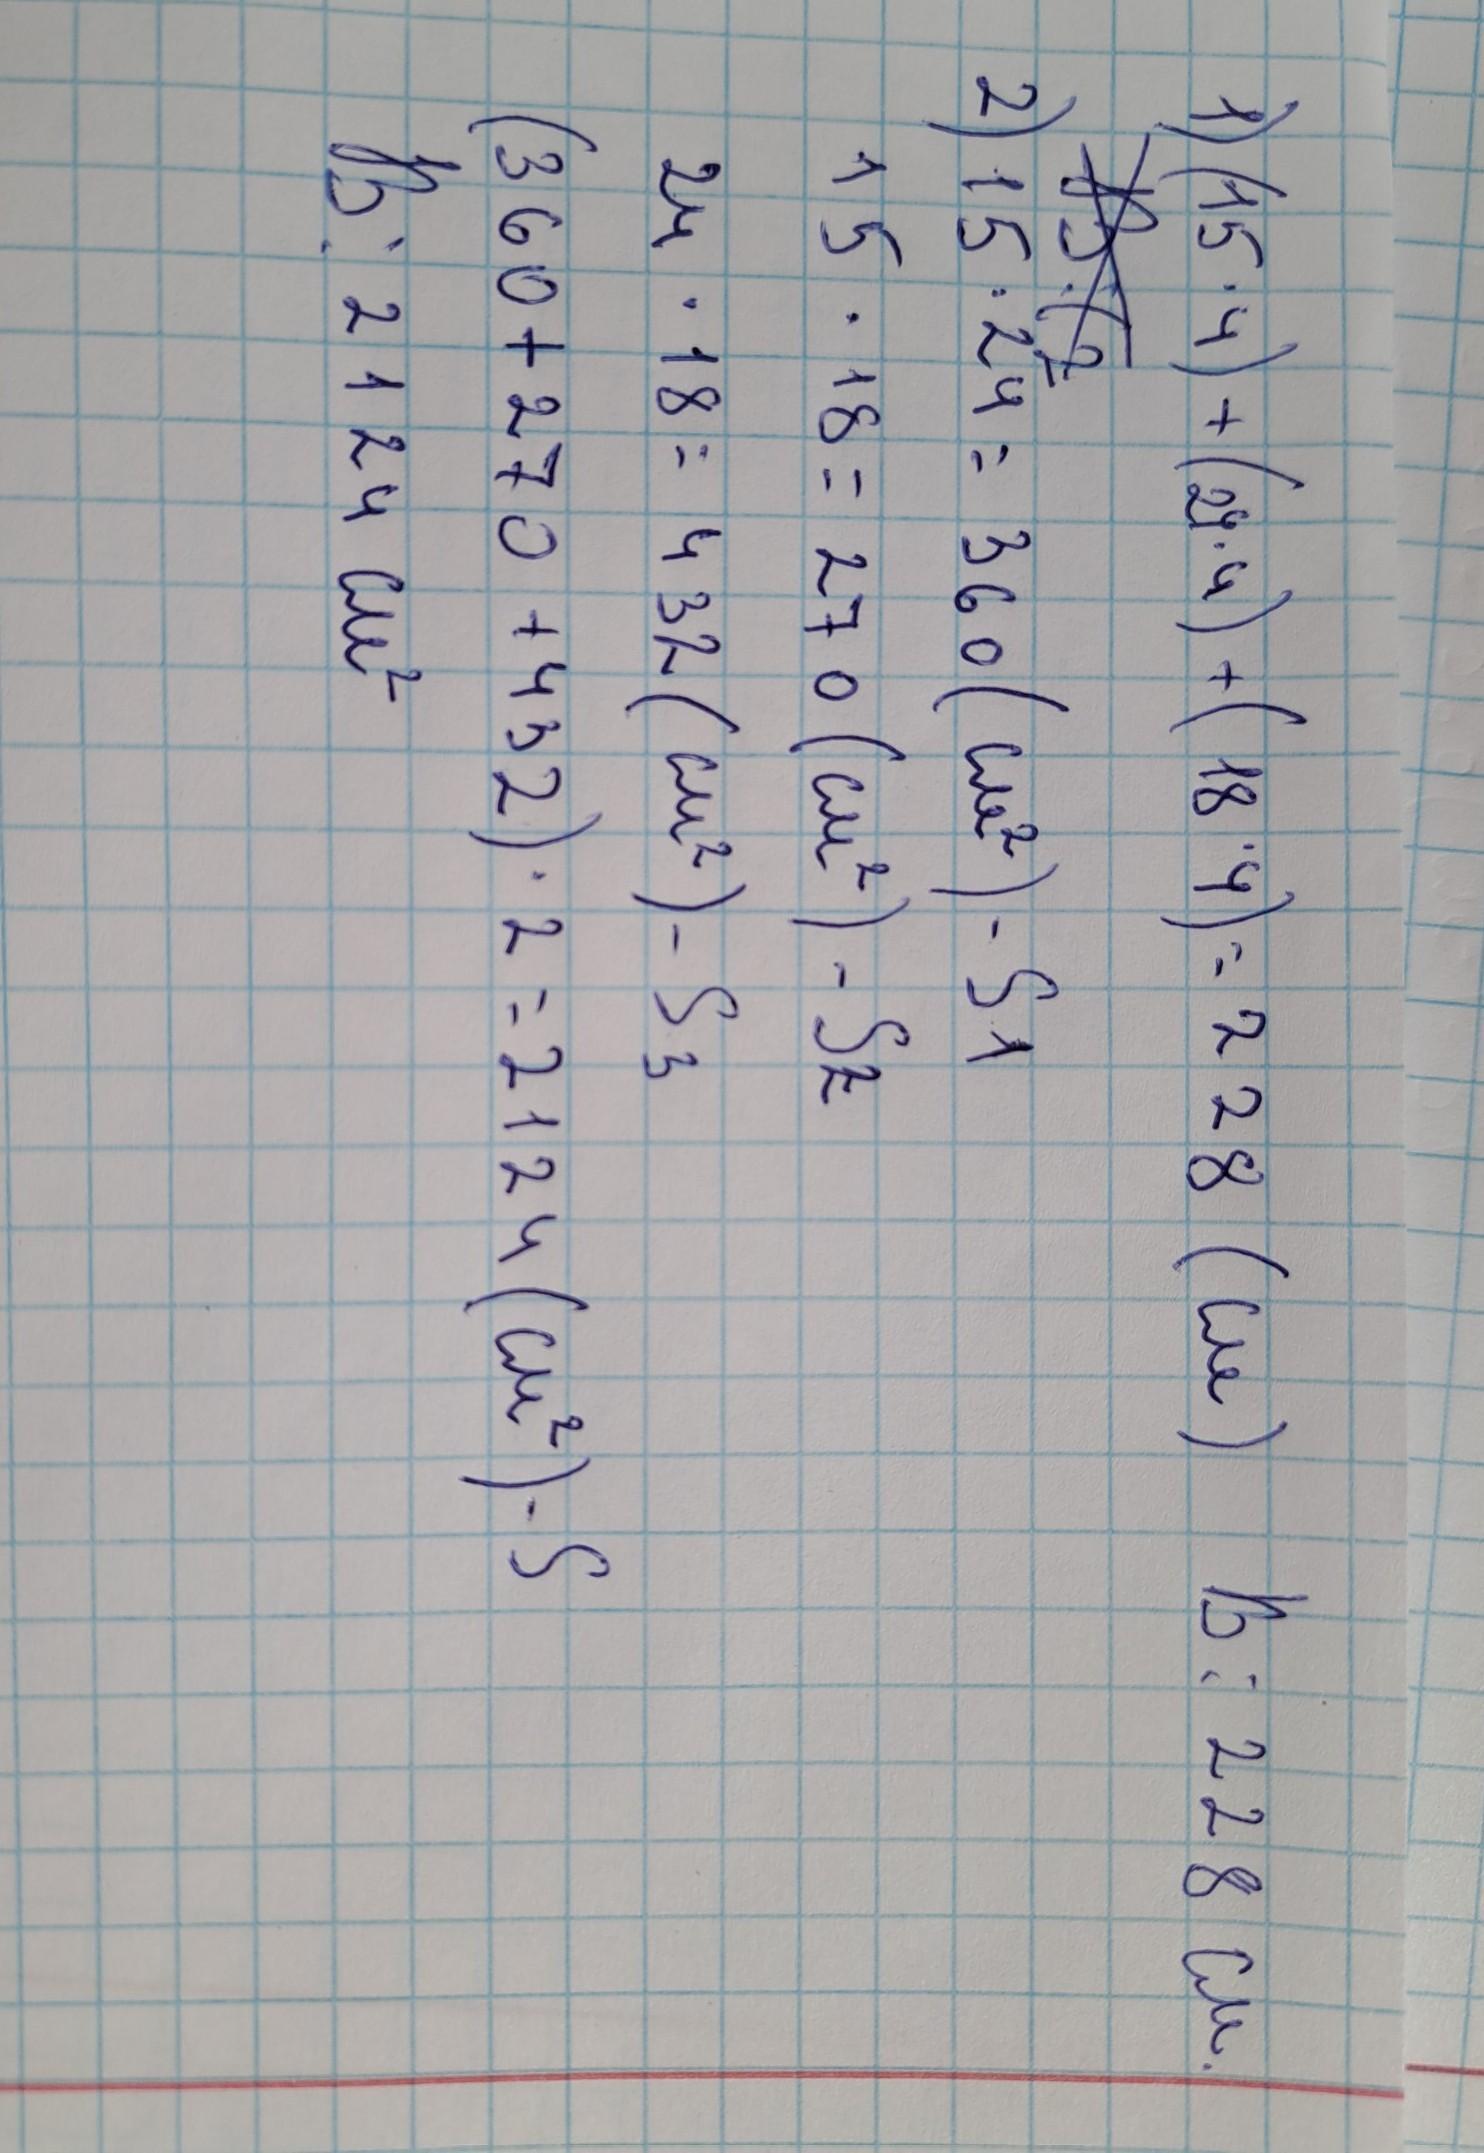 1) (15·4) + (24·4) + (18·4) = 228 (см) В: 228 см.
2) 15·24 = 360 (см²) - S1
15 · 18 = 270 (см²) - S2
24 · 18 = 432 (см²) - S3
(360 + 270 + 432) · 2 = 2124 (см²) - S
В: 2124 см²